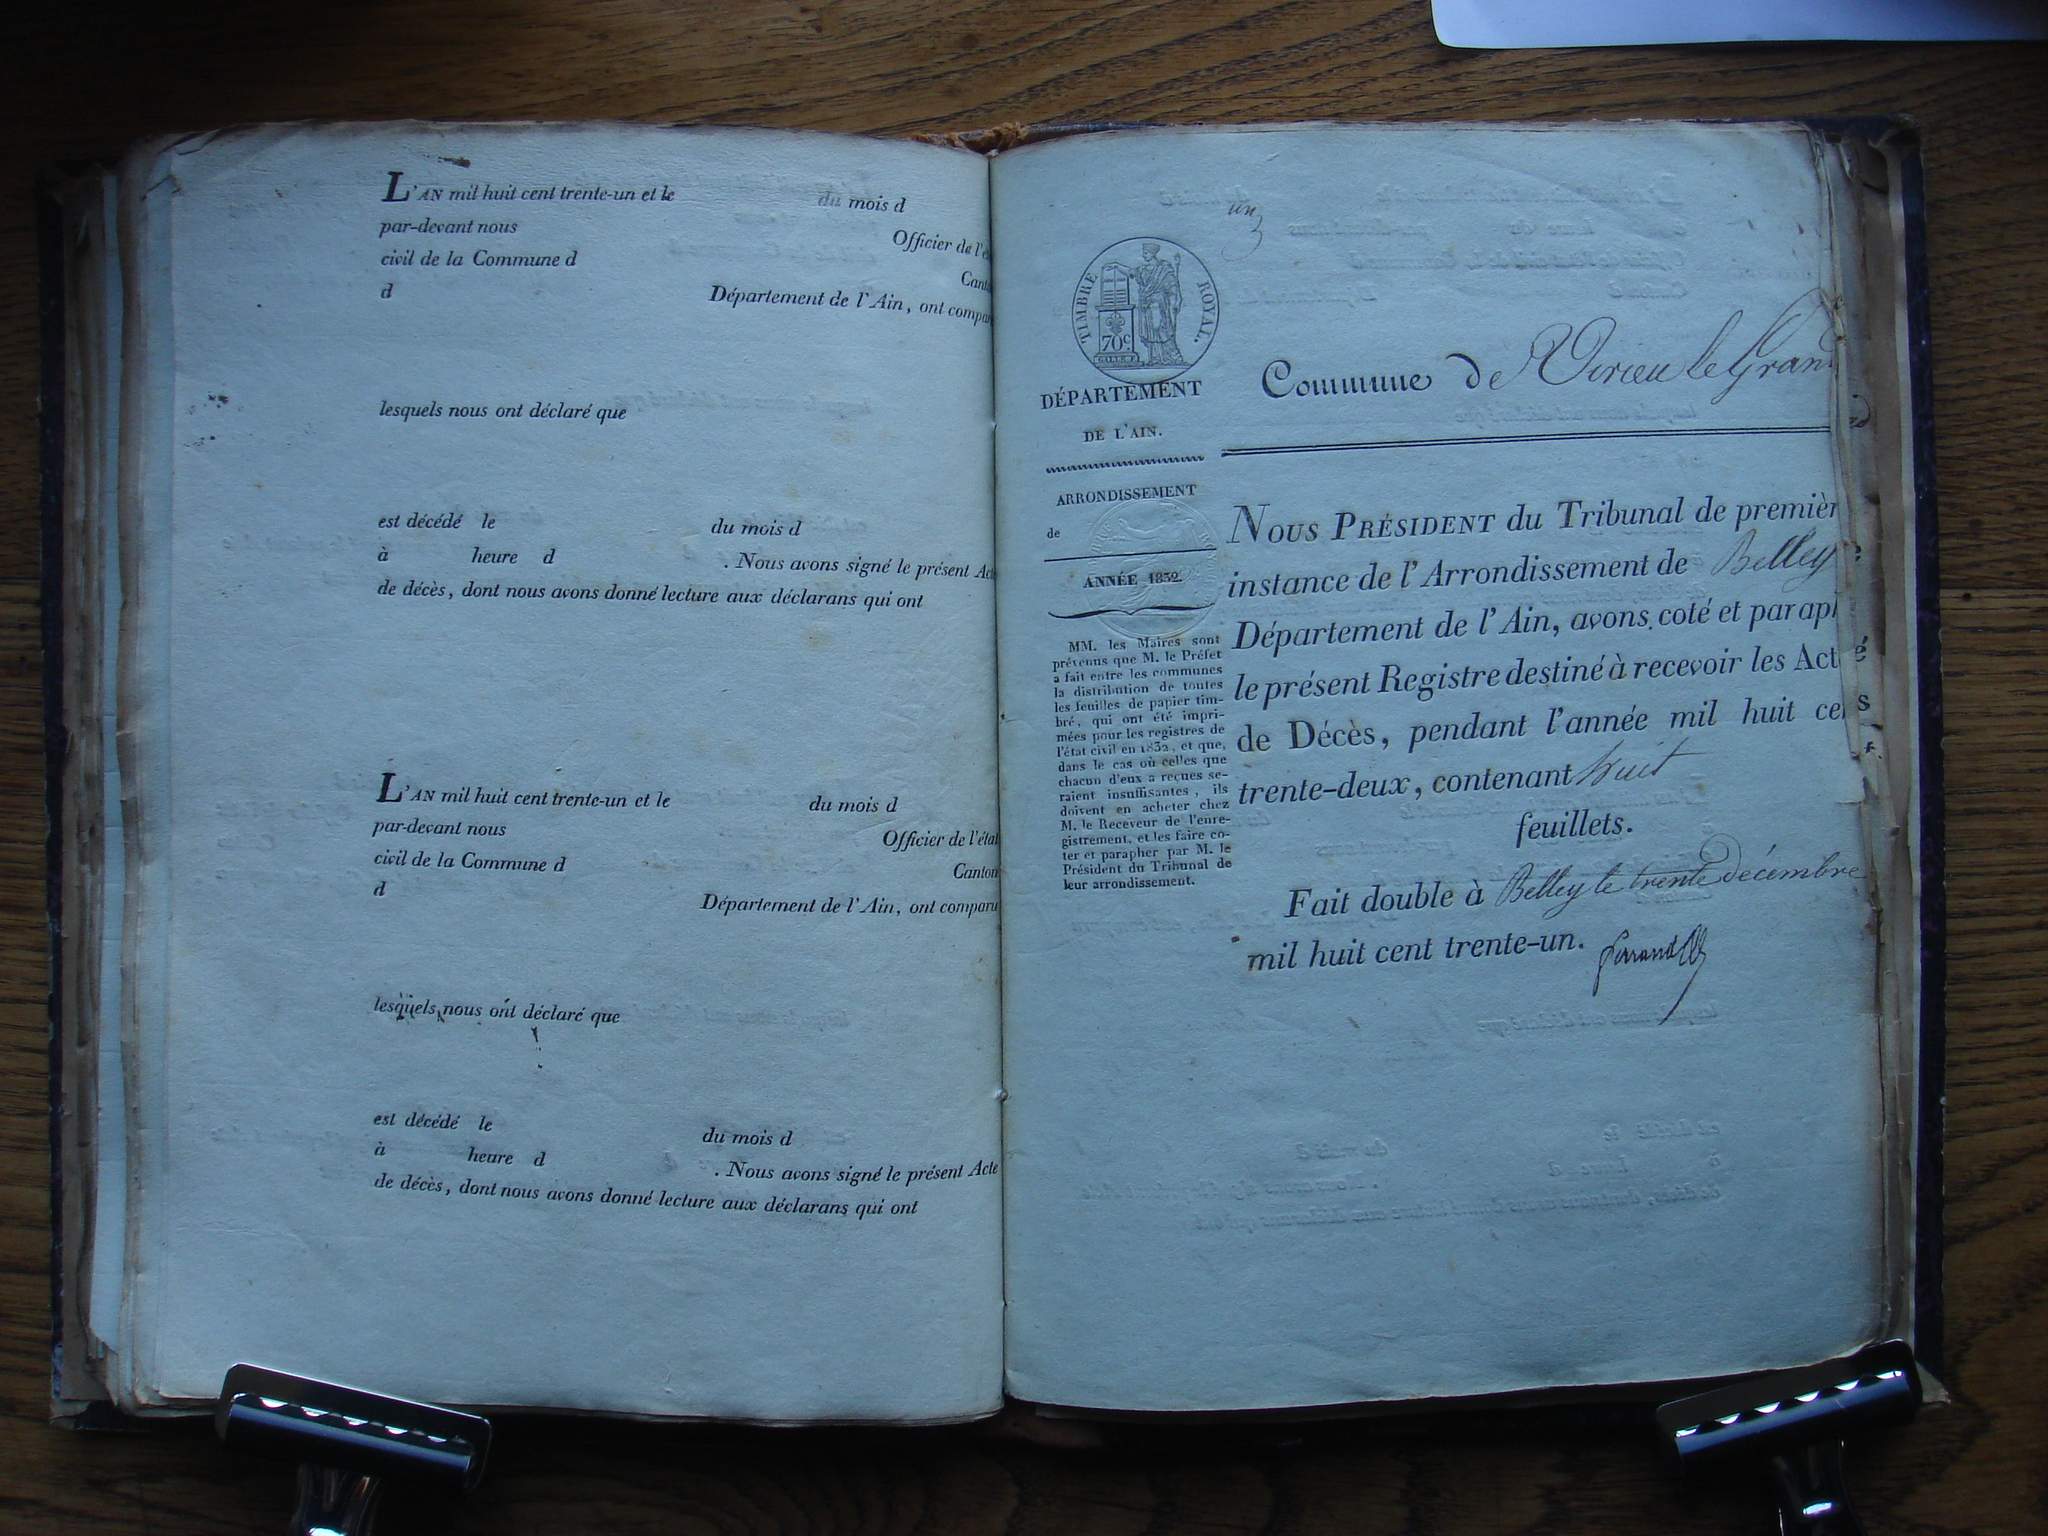 L'AN mil huit cent trente-un et le du mois d
par-devant nous Officier de l'é
civil de la Commune d Cant
d Département de l'Ain, ont compar
lesquels nous ont déclaré que
est décédé le du mois d
à heure d . Nous avons signé le présent Act
de décès, dont nous avons donné lecture aux déclarans qui ont
L'AN mil huit cent trente-un et le du mois d
par-devant nous Officier de l'état
civil de la Commune d Canton
d Département de l'Ain, ont comparu
lesquels nous ont déclaré que
est décédé le du mois d
à heure d . Nous avons signé le présent Acte
de décès, dont nous avons donné lecture aux déclarans qui ont
un
TIMBRE ROYAL.
70c
DÉPARTEMENT
DE L'AIN.
ARRONDISSEMENT
de
ANNÉE 1832.
MM. les Maires sont
prévenus que M. le Préfet
a fait entre les communes
la distribution de toutes
les feuilles de papier tim-
bré, qui ont été impri-
mées pour les registres de
l'état civil en 1832, et que,
dans le cas où celles que
chacun d'eux a reçues se-
raient insuffisantes, ils
doivent en acheter chez
M. le Receveur de l'enre-
gistrement, et les faire co-
ter et parapher par M. le
Président du Tribunal de
leur arrondissement.
Commune de Virieu le Grand
NOUS PRÉSIDENT du Tribunal de premièr
instance de l'Arrondissement de Belley
Département de l'Ain, avons coté et paraph
le présent Registre destiné à recevoir les Act
de Décès, pendant l'année mil huit cen
trente-deux, contenant huit
feuillets.
Fait double à Belley le trente décembre
mil huit cent trente-un.